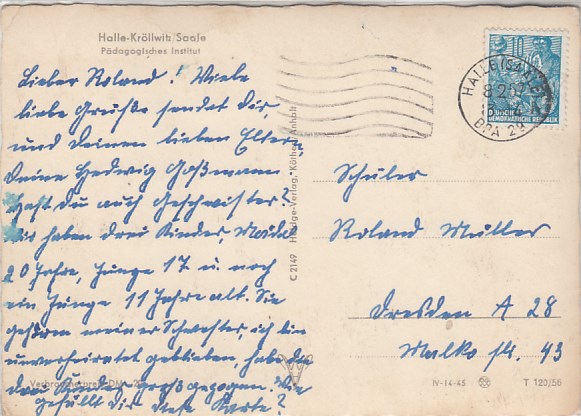 Halle-Kröllwitz/Saale
Pädagogisches Institut
Lieber Roland! Viele
liebe Grüße sendet dir
und deinen lieben Eltern,
Deine Hedwig Goßmann
Hast du auch Geschwister?
Wir haben drei Kinder, Mädel
20 Jahre, Junge 17 u. noch
ein Junge 11 Jahre alt. Sie
gehören meiner Schwester, ich bin
unverheiratet geblieben, habe die
drei Kinder großgezogen. Wie
gefällt dir diese Karte?
Verbraucherpreis DM
C 2149 Verlag, Köthen/Anhalt
HALLE (SAALE)
BPA 29
DEUTSCHE
DEMOKRATISCHE REPUBLIK
Schüler
Roland Müller
Dresden A 28
Malko str. 43
IV-14-45
T 120/56